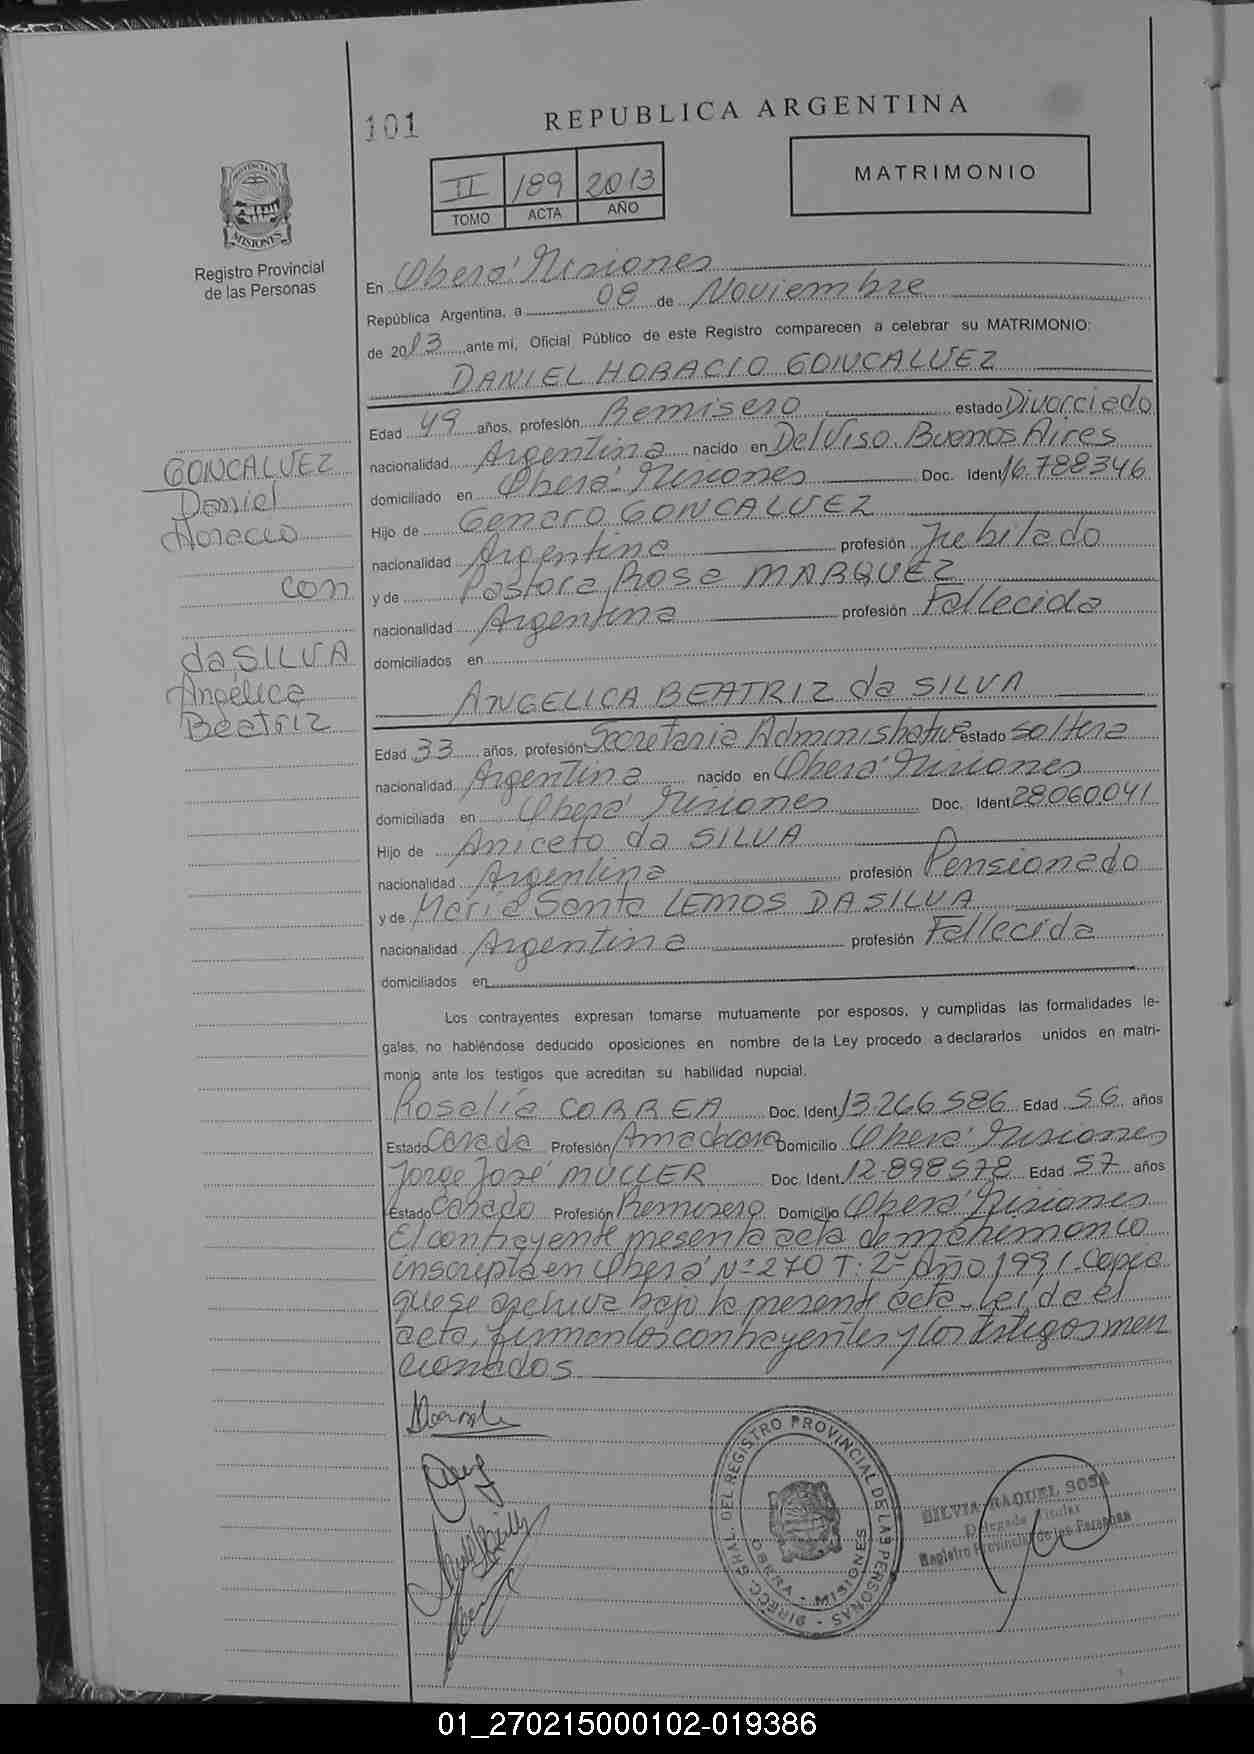 101
REPUBLICA ARGENTINA
II 189 2013
TOMO ACTA AÑO
MATRIMONIO
PROVINCIA DE
MISIONES
Registro Provincial
de las Personas
En Oberá Misiones
República Argentina, a 08 de Noviembre
de 2013 ante mi, Oficial Público de este Registro comparecen a celebrar su MATRIMONIO:
DANIEL HORACIO GONCALVEZ
Edad 49 años, profesión Remisero estado Divorciado
nacionalidad Argentina nacido en Del Viso. Buenos Aires
domiciliado en Oberá Misiones Doc. Ident 16.788346
Hijo de Genaro GONCALVEZ
nacionalidad Argentina profesión Jubilado
y de Pastora Rosa MARQUEZ
nacionalidad Argentina profesión Fallecida
domiciliados en
GONCALVEZ
Daniel
Horacio
con
da SILVA
Angélica
Beatriz
ANGELICA BEATRIZ da SILVA
Edad 33 años, profesión Secretaria Administrativa estado soltera
nacionalidad Argentina nacido en Oberá Misiones
domiciliada en Oberá Misiones Doc. Ident 28060.041
Hijo de Aniceto da SILVA
nacionalidad Argentina profesión Pensionado
y de María Santa LEMOS DA SILVA
nacionalidad Argentina profesión Fallecida
domiciliados en
Los contrayentes expresan tomarse mutuamente por esposos, y cumplidas las formalidades le-
gales, no habiéndose deducido oposiciones en nombre de la Ley procedo a declararlos unidos en matri-
monio ante los testigos que acreditan su habilidad nupcial.
Rosalía CORREA Doc. Ident 13.266.586 Edad 56 años
Estado Casada Profesión Ama de casa Domicilio Oberá Misiones
Jorge José MULLER Doc. Ident 12.898578 Edad 57 años
Estado Casado Profesión Remisero Domicilio Oberá Misiones
El contrayente presenta acta de matrimonio
inscripta en Oberá Nº 270 T: 2º Año 1991. Copia
que se archiva bajo la presente acta. Leída el
acta, firman los contrayentes y los testigos men
cionados
DIRECC. GRAL. DEL REGISTRO PROVINCIAL DE LAS PERSONAS
OBERA - MISIONES
SILVIA RAQUEL SOSA
Delegada Titular
Registro Provincial de las Personas
01_270215000102-019386